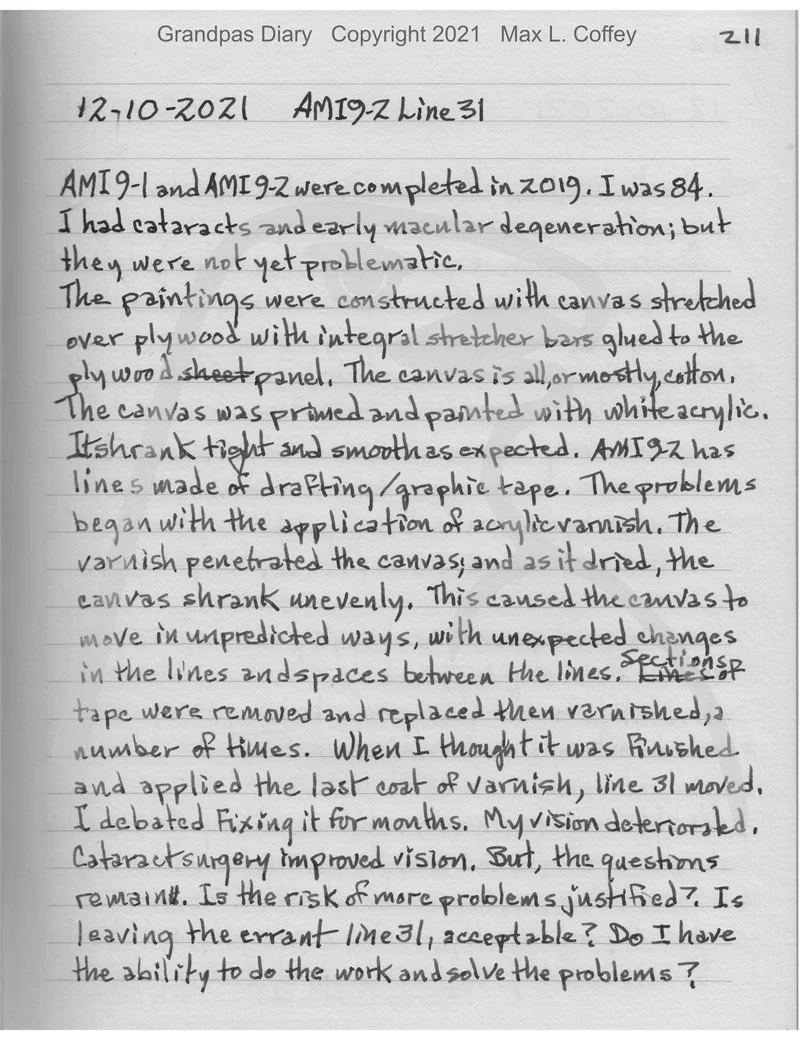 Grandpas Diary Copyright 2021 Max L. Coffey 211
12-10-2021 AMI9-2 Line 31
AMI 9-1 and AMI 9-2 were completed in 2019. I was 84.
I had cataracts and early macular degeneration; but
they were not yet problematic.
The paintings were constructed with canvas stretched
over plywood with integral stretcher bars glued to the
plywood sheet panel. The canvas is all, or mostly, cotton.
The canvas was primed and painted with white acrylic.
It shrank tight and smooth as expected. AMI 9-2 has
lines made of drafting/graphic tape. The problems
began with the application of acrylic varnish. The
varnish penetrated the canvas; and as it dried, the
canvas shrank unevenly. This caused the canvas to
move in unpredicted ways, with unexpected changes
in the lines and spaces between the lines. Sections Lines of
tape were removed and replaced then varnished, a
number of times. When I thought it was finished
and applied the last coat of varnish, line 31 moved.
I debated fixing it for months. My vision deteriorated.
Cataract surgery improved vision. But, the questions
remain. Is the risk of more problems justified? Is
leaving the errant line 31, acceptable? Do I have
the ability to do the work and solve the problems?